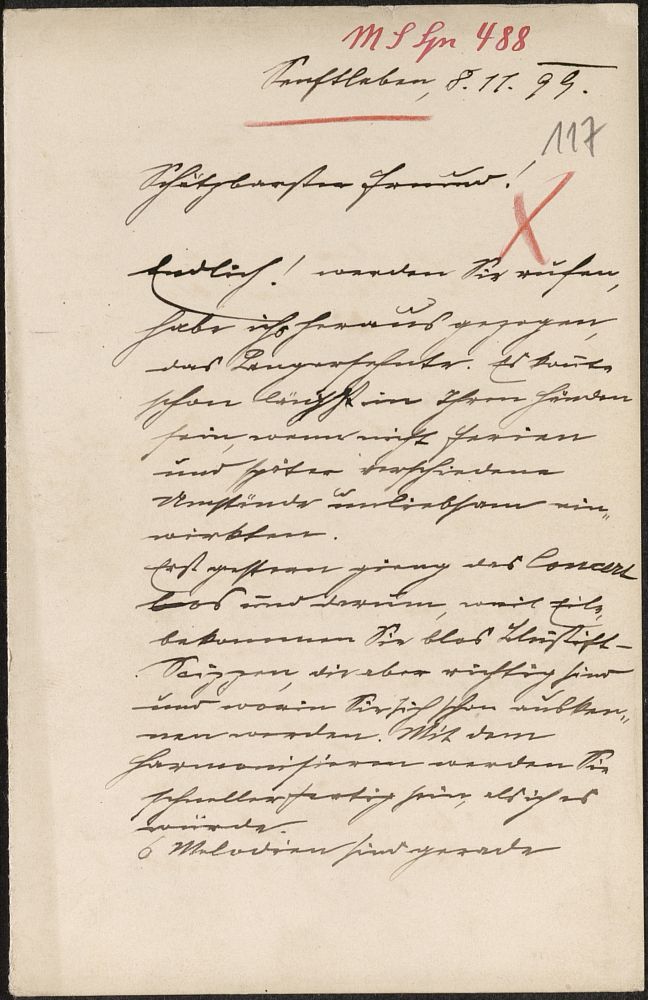 MS Gn 488
Senftleben, 8. 11. 99.
117
Schätzbarster Freund!
Endlich! werden Sie rufen,
habe ichs herausgezogen,
das Langersehnte. Es konnte
schon längst in Ihren Händen
sein, wenn nicht Ferien
und später verschiedene
Umstände unliebsam ein„
wirkten.
Erst gestern gieng das Concert
los und darum, weil Eile,
bekommen Sie blos Bleistift-
Scizzen, die aber richtig sind
und worin Sie sich schon ausken„
nen werden. Mit dem
Harmonisieren werden Sie
schneller fertig sein, als ich es
würde.
6 Melodien sind gerade